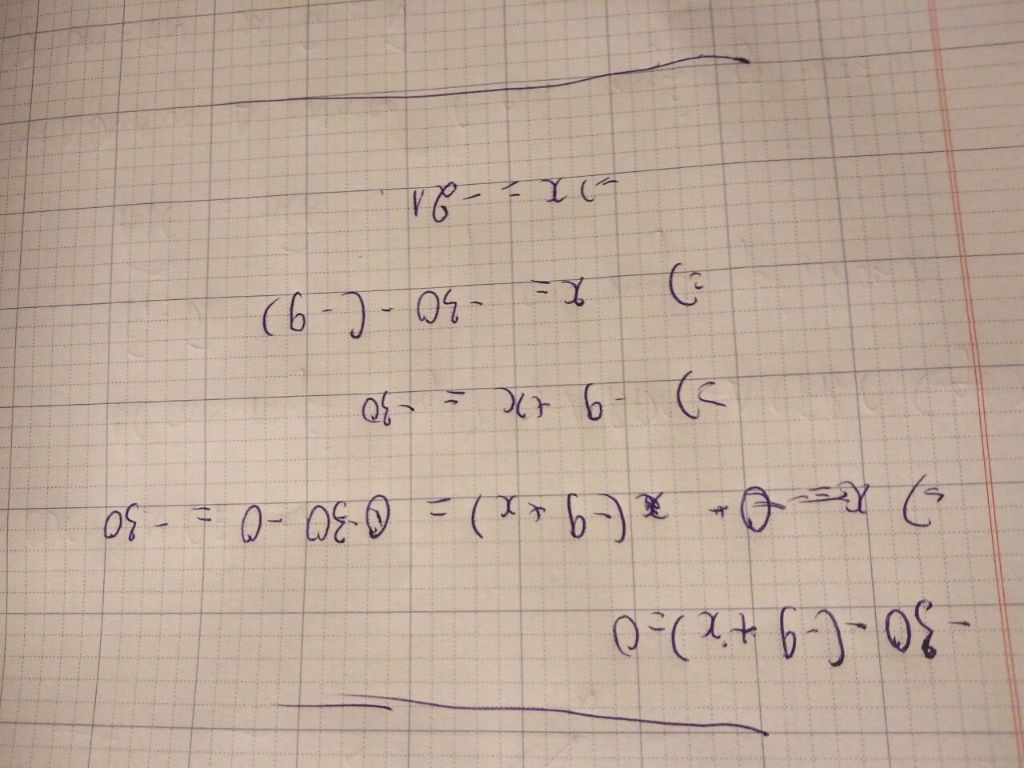 -30 - (-9 + x) = 0
=) (-9 + x) = -30 - 0 = -30
=) -9 + x = -30
=) x = -30 - (-9)
=) x = -21